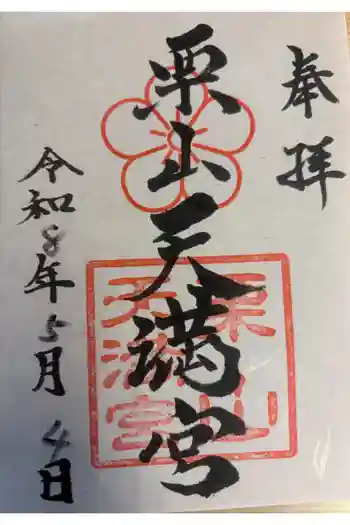 奉拝
栗山天満宮
栗山
天満宮
令和8年5月4日